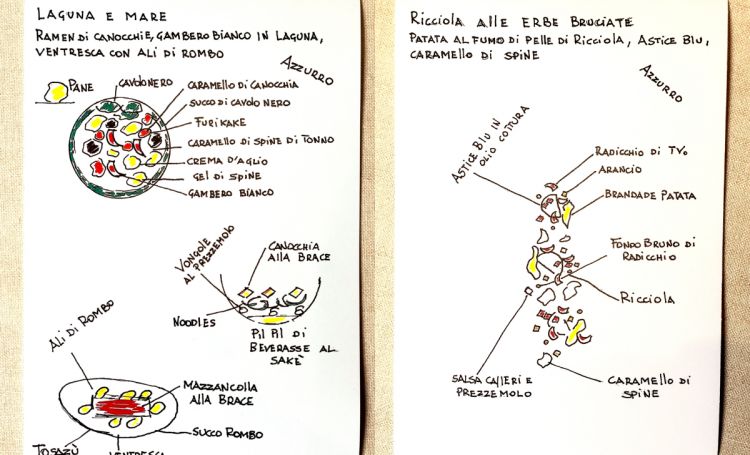 LAGUNA E MARE
RAMEN DI CANOCCHIE, GAMBERO BIANCO IN LAGUNA,
VENTRESCA CON ALI DI ROMBO
AZZURRO
PANE
CAVOLO NERO
CARAMELLO DI CANOCCHIA
SUCCO DI CAVOLO NERO
FURIKAKE
CARAMELLO DI SPINE DI TONNO
CREMA D'AGLIO
GEL DI SPINE
GAMBERO BIANCO
VONGOLE
AL PREZZEMOLO
CANOCCHIA
ALLA BRACE
NOODLES
PIL PIL DI
BEVERASSE AL
SAKÈ
ALI DI ROMBO
MAZZANCOLLA
ALLA BRACE
SUCCO ROMBO
TOSAZÙ
VENTRESCA
RICCIOLA ALLE ERBE BRUCIATE
PATATA AL FUMO DI PELLE DI RICCIOLA, ASTICE BLU,
CARAMELLO DI SPINE
AZZURRO
ASTICE BLU IN
OLIO COTTURA
RADICCHIO DI TVO
ARANCIO
BRANDADE PATATA
FONDO BRUNO DI
RADICCHIO
RICCIOLA
SALSA CALIERI E
PREZZEMOLO
CARAMELLO DI
SPINE